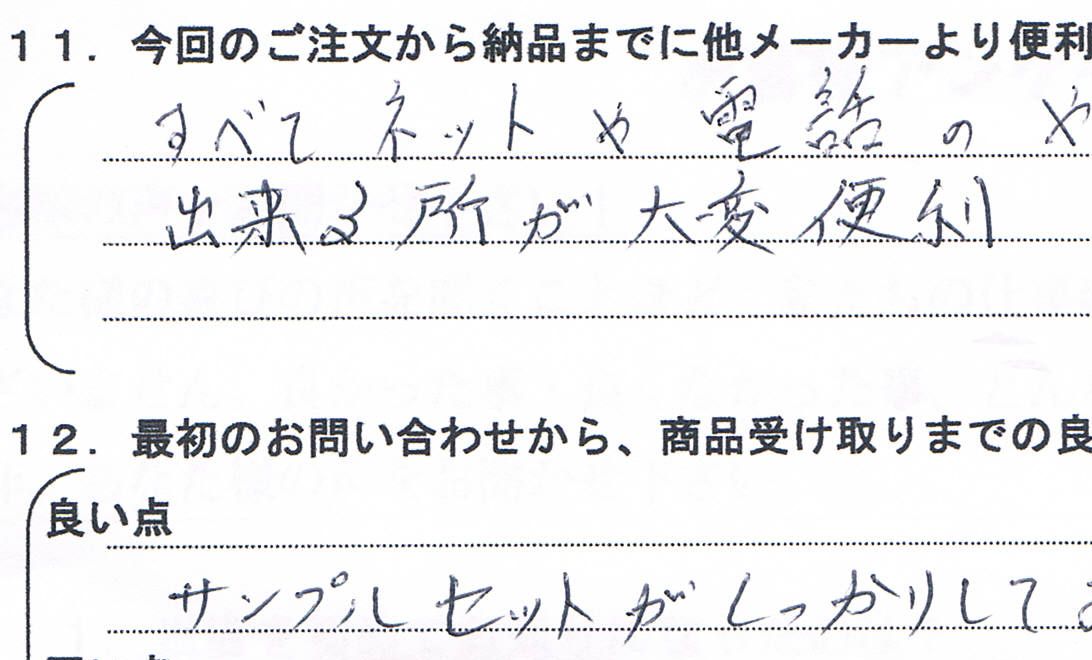 11．今回のご注文から納品までに他メーカーより便利
すべて ネット や 電話 の や
出来る所が 大変 便利
12．最初のお問い合わせから、商品受け取りまでの良
良い点
サンプルセットがしっかりして